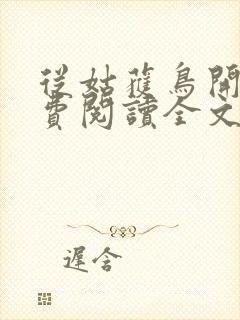 從姑獲鳥開
費閱讀全文
遲含